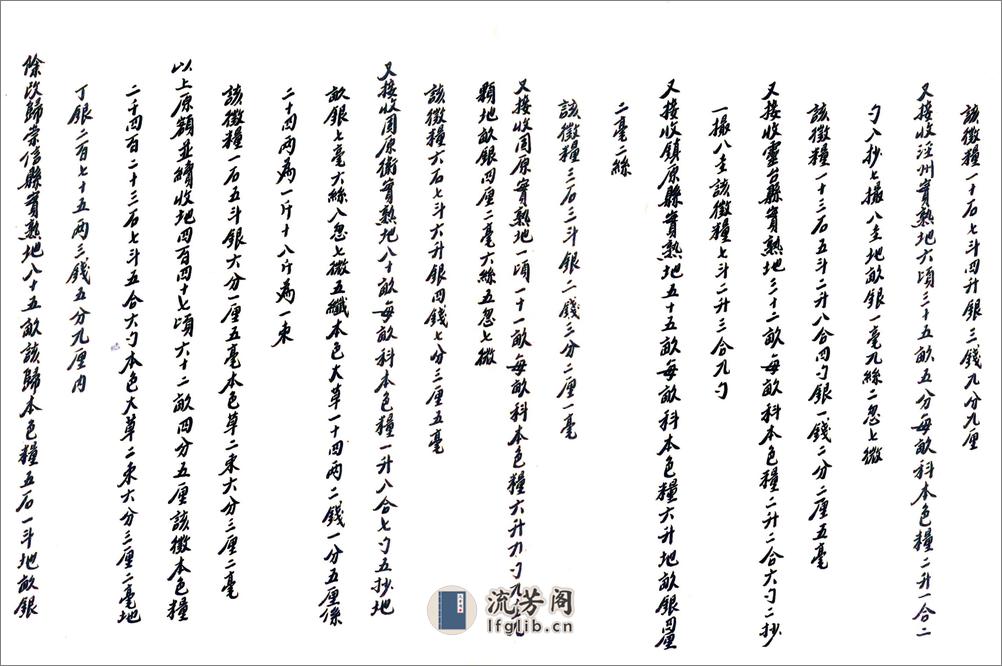 該徵糧一十石七斗四升銀三錢九分九厘
又接收涇州實熟地六頃三十五畝五分每畝科本色糧二升一合二
勺八抄七撮八圭地畝銀一毫九絲二忽七微
該徵糧一十三石五斗二升八合四勺銀一錢二分二厘五毫
又接收靈台縣實熟地三十二畝每畝科本色糧二升二合六勺二抄
一撮八圭該徵糧七斗二升三合九勺
又接收鎮原縣實熟地五十五畝每畝科本色糧六升地畝銀四厘
二毫二絲
該徵糧三石三斗銀二錢三分二厘一毫
又接收固原實熟地一頃一十一畝每畝科本色糧六升
顆地畝銀四厘二毫六絲五忽七微
該徵糧六石七斗六升銀四錢七分三厘五毫
又接收固原衛實熟地八十畝每畝科本色糧一升八合七勺五抄地
畝銀七毫六絲八忽七微五纖本色大草一十四兩二錢一分五厘係
二十四兩為一斤十八斤為一束
該徵糧一石五斗銀六分一厘五毫本色草二束六分三厘二毫
以上原額並續收地四百四十七頃六十二畝四分五厘該徵本色糧
二千四百二十三石七斗五合六勺本色大草二束六分三厘二毫地
丁銀二百七十五兩三錢五分九厘內
除改歸崇信縣實熟地八十五畝該歸本色糧五石一斗地畝銀
流芳阁
lfglib.cn